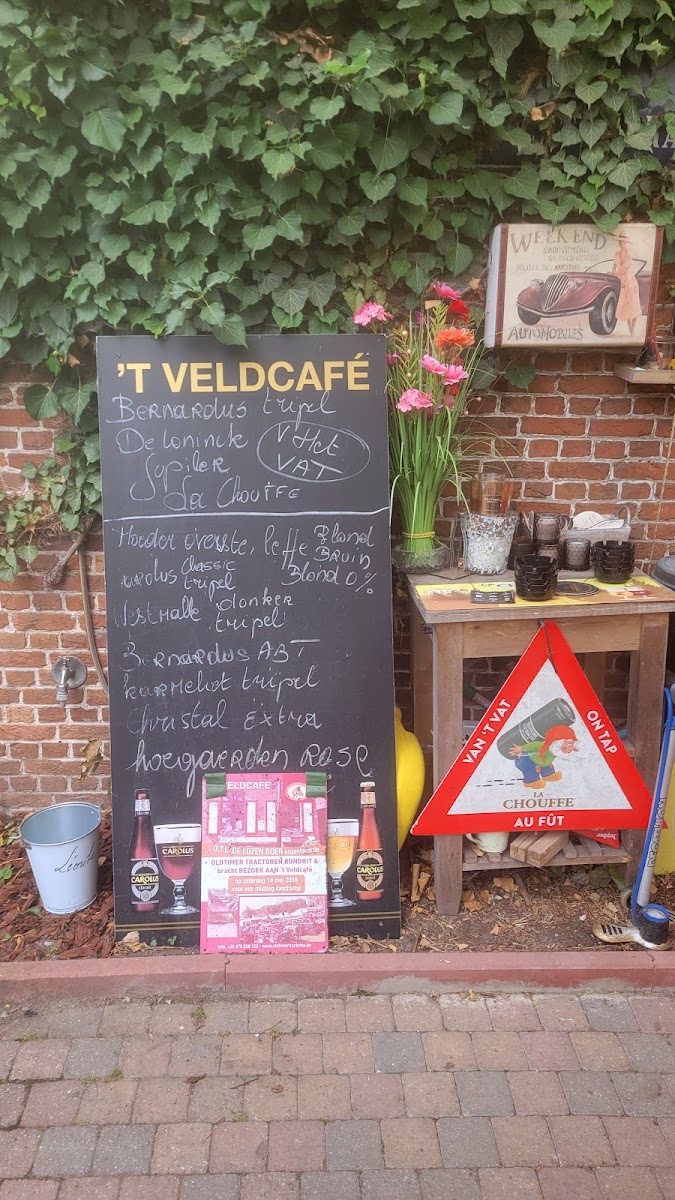 'T VELDCAFÉ
Bernardus tripel
De Coninck
V Het
VAT
Jupiler
La Chouffe
Moeder overste, leffe Blond
Bruin
Blond 0%
urolus classic
tripel
Westmalle donker
tripel
Bernardus ABT
karmeliet tripel
Christal Extra
hoegaerden Rosé
WEEK END
AUTOMOBILES
VAN 'T VAT
ON TAP
LA
CHOUFFE
AU FÛT
Léonie
CAROLUS
classic
CAROLUS
CAROLUS
ELDCAFE
O.T.L. DE LOZEN BOER organiseerde
OLDTIMER TRACTOREN RONDRIT &
bracht BEZOEK AAN 't Veldcafé
op zaterdag 14 mei 2016
voor een middag lunchstop